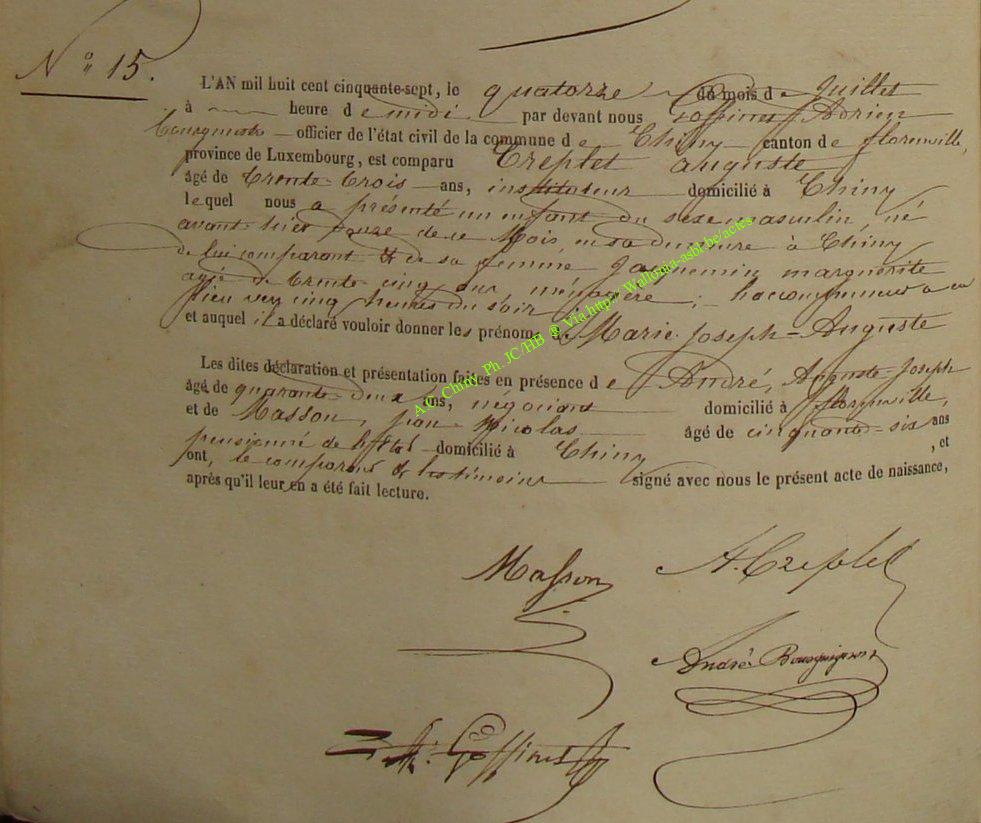 N° 15.
L'AN mil huit cent cinquante-sept, le quatorze du mois de Juillet
à heure de midi par devant nous Goffinet Adrien
Bourgmestre officier de l'état civil de la commune de Chiny canton de florenville,
province de Luxembourg, est comparu Creplet auguste
âgé de trente trois ans, instituteur domicilié à Chiny
lequel nous a présenté un enfant du sexe masculin, né
avant hier douze de ce Mois, en sa demeure à Chiny
de lui comparant & de sa femme Jacquemin marguerite
agée de trente cinq ans ménagère; l'accouchement a eu
lieu vers cinq heures du soir
et auquel il a déclaré vouloir donner les prénoms de Marie Joseph-Auguste
Les dites déclaration et présentation faites en présence de André, Auguste-Joseph
âgé de quarante deux ans, négociant domicilié à florenville,
et de Masson, jean Nicolas âgé de cinquante-six ans
pensionné de l'état domicilié à Chiny , et
ont, le comparant & les témoins signé avec nous le présent acte de naissance,
après qu'il leur en a été fait lecture.
Masson A. Creplet
André Bourguignon
A. Goffinet
A.C. Chiny Ph. JC/HB ® Via https://Wallonia-asbl.be/actes